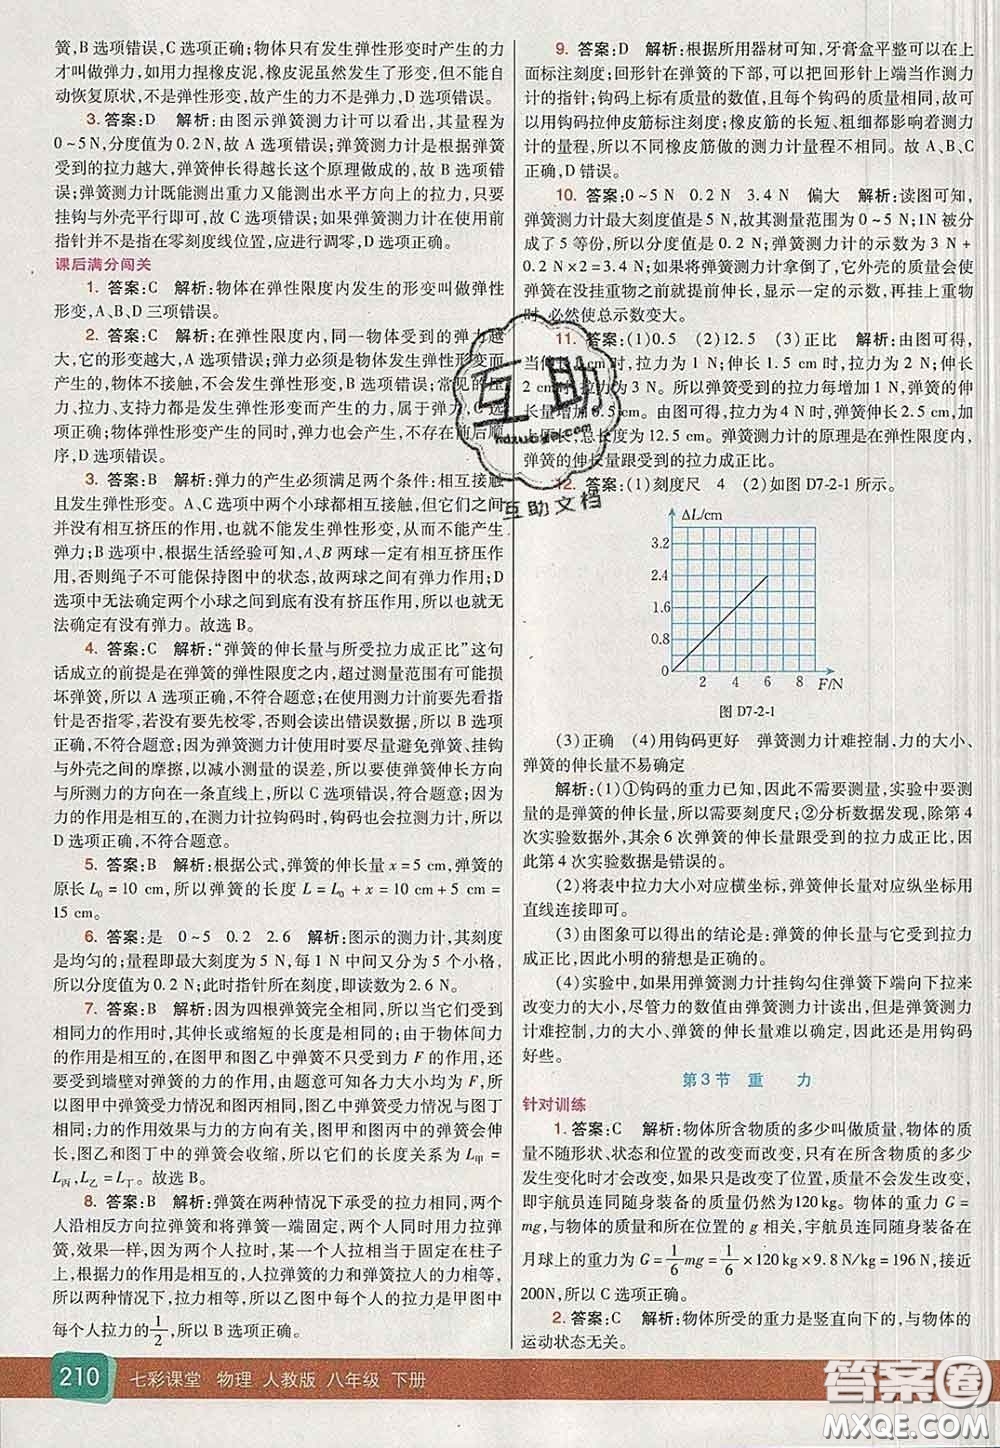 簧,B 选项错误,C 选项正确;物体只有发生弹性形变时产生的力
才叫做弹力,如用力捏橡皮泥,橡皮泥虽然发生了形变,但是不能
自动恢复原状,不是弹性形变,故产生的力不是弹力,D 选项错误。
3. 答案:D 解析:由图示弹簧测力计可以看出,其量程为
0~5N,分度值为 0.2 N,故 A 选项错误;弹簧测力计是根据弹簧
受到的拉力越大,弹簧伸长得越长这个原理做成的,故 B 选项错
误;弹簧测力计既能测出重力又能测出水平方向上的拉力,只要
挂钩与外壳平行即可,故 C 选项错误;如果弹簧测力计在使用前
指针并不是指在零刻度线位置,应进行调零,D 选项正确。
课后满分闯关
1. 答案:C 解析:物体在弹性限度内发生的形变叫做弹性
形变,A、B、D 三项错误。
2. 答案:C 解析:在弹性限度内,同一物体受到的弹力越
大,它的形变越大,A 选项错误;弹力必须是物体发生弹性形变而
产生的,不发生接触,就不能产生弹力,B 选项错误;常见的压
力、拉力、支持力都是发生弹性形变而产生的力,属于弹力,C 选
项正确;物体发生弹性形变产生的同时,弹力也产生,不存在前后顺
序,D 选项错误。
3. 答案:B 解析:弹力的产生必须满足两个条件:相互接触
且发生弹性形变。A、C 选项中两个小球都相互接触,但由于球
间并没有相互挤压的作用,也就不能发生弹性形变,从而不能产生
弹力;B 选项中,根据生活经验可知,A、B 两球一定有相互挤压作
用,否则绳子不可能保持图中的状态,故两球之间有弹力作用;D
选项中无法确定两个小球之间有没有挤压作用,所以也就无
法确定有没有弹力。故选 B。
4. 答案:C 解析:“弹簧的伸长量与所受拉力成正比”这句
话成立的前提是在弹簧的弹性限度之内,超过测量范围有可能损
坏弹簧,所以 A 选项正确,不符合题意;在使用测力计前要先看
指针是否指零,若没有指零要先校零,否则会读出错误数据,所以 B 选项
正确,不符合题意;因为弹簧测力计使用时要尽量避免弹簧、挂钩
与外壳之间的摩擦,以减小测量的误差,所以要使弹簧伸长方向
与所测力的方向在一条直线上,所以 C 选项错误,符合题意;力的
作用是相互的,在测力计拉钩码时,钩码也会拉测力计,所以
D 选项正确,不符合题意。
5. 答案:B 解析:根据公式,弹簧的伸长量 x=5 cm,弹簧的
原长 L₀=10 cm,所以弹簧的长度 L=L₀+x=10 cm+5 cm=
15 cm。
6. 答案:是 0~5 0.2 2.6 解析:图示的测力计,其刻度
是均匀的;量程即最大刻度为 5 N,每 1 N 中有 5 个小格,
所以分度值为 0.2 N;此时指针所在刻度,即读数为 2.6 N。
7. 答案:B 解析:因为四根弹簧完全相同,当它们受到
相同力的作用时,其伸长或缩短的长度是相同的;由于物体间力
的作用是相互的,在图甲和图乙中弹簧不只受到力 F 的作用,还
受到墙壁对弹簧的力的作用,由题意可知它们大小相等,所以
图甲中弹簧受力情况和图丙相同,图乙中弹簧受力情况与图丁
相同,图甲和图丙中的弹簧会伸长,它们的伸长长度相同,
图乙和图丁中的弹簧会收缩,所以它们的长度关系为 L甲=
L丙,L乙=L丁。故选 B。
8. 答案:B 解析:弹簧在两种情况下承受的拉力相同,两个
人沿相反方向拉弹簧和将弹簧一端固定,两个人同时用力拉弹
簧,效果一样,因为两个人拉时,某一个人相当于固定在柱子
上,因为力的作用是相互的,人拉弹簧和弹簧拉人的力是相同的。
所以两种情况弹簧伸长相同,拉力相等,所以乙图每人拉力是甲图中
每个人拉力的1/2,所以 B 选项正确。
9. 答案:D 解析:根据所用器材可知,牙膏盒平整可以在上
面标注刻度;回形针在弹簧的下部,可以把回形针上端当作测力
计的指针;钩码上标有质量的数值,且每个钩码的质量相等,可以
用钩码拉伸皮筋标注刻度;橡皮筋的长短、粗细都影响着测力计
的量程,所以不同橡皮筋做的测力计量程不同。故 A、B、C 正
确,D 错误。
10. 答案:0~5 N 0.2 N 3.4 N 偏大 解析:读图可知,
弹簧测力计最大刻度值是 5 N,故其测量范围为 0~5 N;1N 被分
成了 5 等份,所以分度值是 0.2 N;弹簧测力计的示数为 3 N+
0.2 N×2=3.4 N;如果将弹簧测力计拿倒了,它外壳的质量会使
弹簧在没挂重物之前就提前伸长,显示一定的示数,再挂上重物
时,必然使总示数变大。
11. 答案:(1)0.5 (2)12.5 (3)正比 解析:由图可得,
当伸长 1 cm 时,拉力为 1 N;伸长 1.5 cm 时,拉力为 2 N;伸长
2 cm 时,拉力为 3 N。所以弹簧受到的拉力每增加 1 N,弹簧的伸
长量增加 0.5 cm。由图可得,拉力为 4 N 时,弹簧伸长 2.5 cm,加
上原长,总长度为 12.5 cm。弹簧测力计的原理是在弹性限度内,
弹簧的伸长量跟受到的拉力成正比。
12. 答案:(1)刻度尺 4 (2)如图 D7-2-1 所示。
ΔL/cm
3.2
2.4
1.6
0.8
0
2 4 6 8 F/N
图 D7-2-1
(3)正确 (4)用钩码更好 弹簧测力计难控制,力的大小、
弹簧的伸长量不易确定
解析:(1)①钩码的重力已知,因此不需要测量,实验中要测
量的是弹簧的伸长量,所以需要刻度尺;②分析数据发现,除第 4
次实验数据外,其余 6 次弹簧的伸长量跟受到的拉力成正比,因
此第 4 次实验数据是错误的。
(2)将表中拉力大小对应横坐标,弹簧伸长量对应纵坐标用
直线连接即可。
(3)由图象可以得出的结论是:弹簧的伸长量与它受到拉力
成正比,因此小明的猜想是正确的。
(4)实验时若用弹簧测力计挂钩勾住弹簧下端向下拉来
改变力的大小,尽管力的数值由弹簧测力计读出,但是弹簧测力
计难控制,力的大小、弹簧的伸长量难以确定,因此还是用钩码
好些。
第 3 节 重 力
针对训练
1. 答案:C 解析:物体所含物质的多少叫做质量,物体的质
量不随形状、状态和位置的改变而改变,只有在所含物质的多少
发生改变时才会改变,如果只是位置改变,质量不会发生改变,
即宇航员连同随身装备的质量仍然为 120 kg。物体的重力 G=
mg,与物体的质量和所在位置的 g 相关,宇航员连同随身装备在
月球上的重力为 G=1/6mg=1/6×120 kg×9.8 N/kg=196 N,接近
200N,所以 C 选项正确。
2. 答案:C 解析:物体所受的重力是竖直向下的,与物体的
运动状态无关。
210 七彩课堂 物理 人教版 八年级 下册
互助
hdzuoye.com
互助文档
答案圈
MXQE.COM